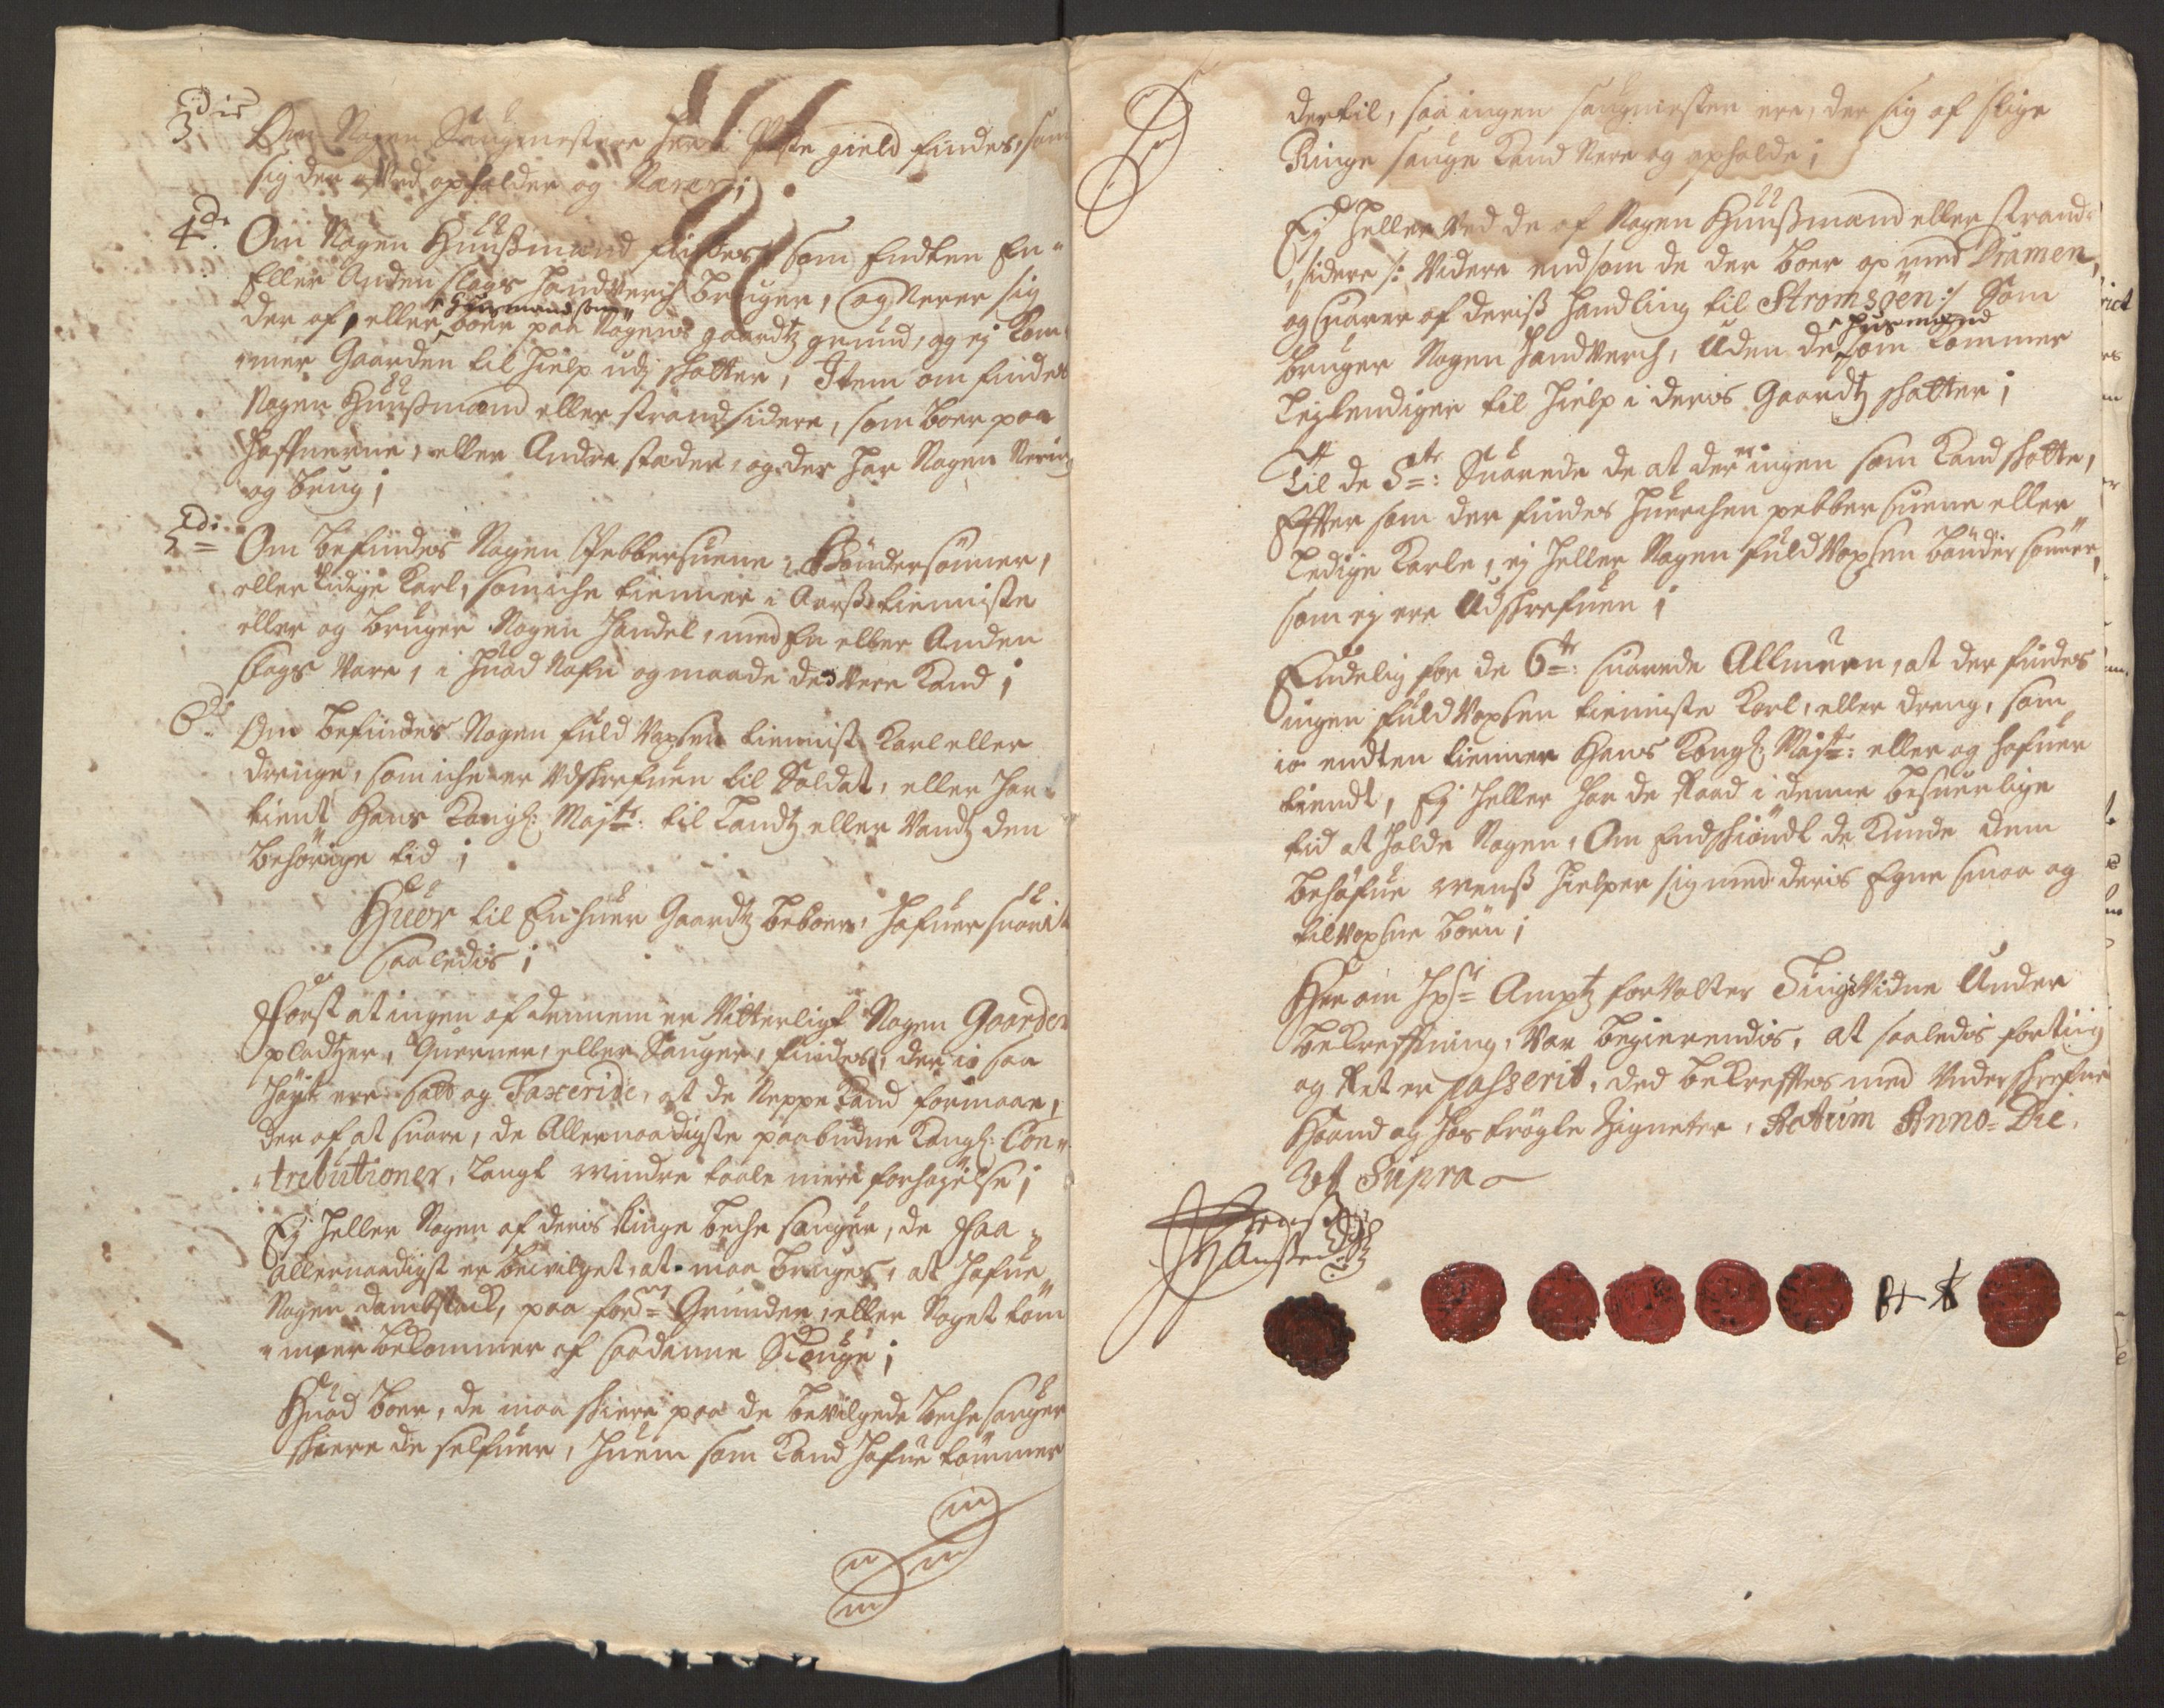 3die
Om Nogen Saugmestere her i Giæld findes, som
sig der Ved opholder og Nærer;
4de. Om Nogen Huußmænd findes, som Endten En
Eller Anden slags Handverch bruger, og Nerer sig
der af, eller ^Husmænd som boer paa Nogens gaardtz grund, og ej kom
mer Gaarden til Hielp udj skatter, Item om findes
Nogen Huußmænd eller strand sidere, som boer paa
Haffnerne, eller Andre stæder, og der har Nogen Nering
og brug;
5de Om befindes Nogen Pebbersuene, Bøndersønner,
eller Ledige Karl, som iche tienner i Aarß tienniste
eller og bruger Nogen Handel, med En eller Anden
slags Vare, i huad Nafn og maade ded Vere kand;
6de Om befindes Nogen fuld Voxsen tiennist Karl eller
drenge, som iche er Udskrefuen til Soldat, eller har
tient Hans Kongl: Majtz: til Landtz eller Vandtz den
behørige tid;
Huor til Enhuer Gaardtz beboer, hafuer suarit
saaledis;
Først at ingen af dennem er Vitterligt Nogen Gaarder
pladtzer, Querner, eller Sauger, findes, der io saa
høyt ere satt og Taxeride, at de Neppe kand formaae,
der af at suare, de Allernaadigste paabudne Kongl: Con
tributioner, langt mindre taale mere forhøjelse;
Ej heller Nogen af deris Ringe beche sauger, de saa
allernaadigst er bevilget, at maa bruges, at hafue
Nogen damb stock, paa forne Grunder, eller Noget töm
mer bekommer af saadanne Skouge;
Huad boer, de maa skiere paa de bevilgede beche sauger
skiere de selfuer, huem som kand hafue tømmer
dertil, saa ingen saugmester ere, der sig af slige
Ringe sauge kand Nere og opholde;
Ej heller Ved de af Nogen Huußmænd eller strand
sidere /: Videre end som de der boer op med Dramen,
og suarer af deriß handling til Strømsøen :/ Som
bruger Nogen Handverch, Uden de ^Husmænd som kommer
Leylendiger til Hielp i deris Gaardtz skatter;
Till de 5te: Suarede de at der er ingen som kand skatte,
Efter som der findes huerchen pebber suene eller
Ledige Karle, ej heller Nogen fuld Voxsen bønder sønner,
som ej ere Udskrefuen;
Endelig for de 6te: suarede Allmuen, at der findes
ingen fuld Voxsen tienniste Karl, eller dreng, som
io endten tienner Hans Kongl: Maijtz: eller og hafuer
tiendt, Ej heller har de Raad i denne besuerlige
tid at holde Nogen, Om Endskiøndt de kunde dem
behøfue menß hielper sig med deris Egne smaa og
tilvoxsne børn;
Her om Hr Amptz forvalter Tingsvidne Under
bekreffning, var begierendis, at saaledis for ting
og Ret er passerit, ded bekreffter med Underskrefne
Haand og hos trøgte Zigneter, Actum Anno Die
Ut Supra